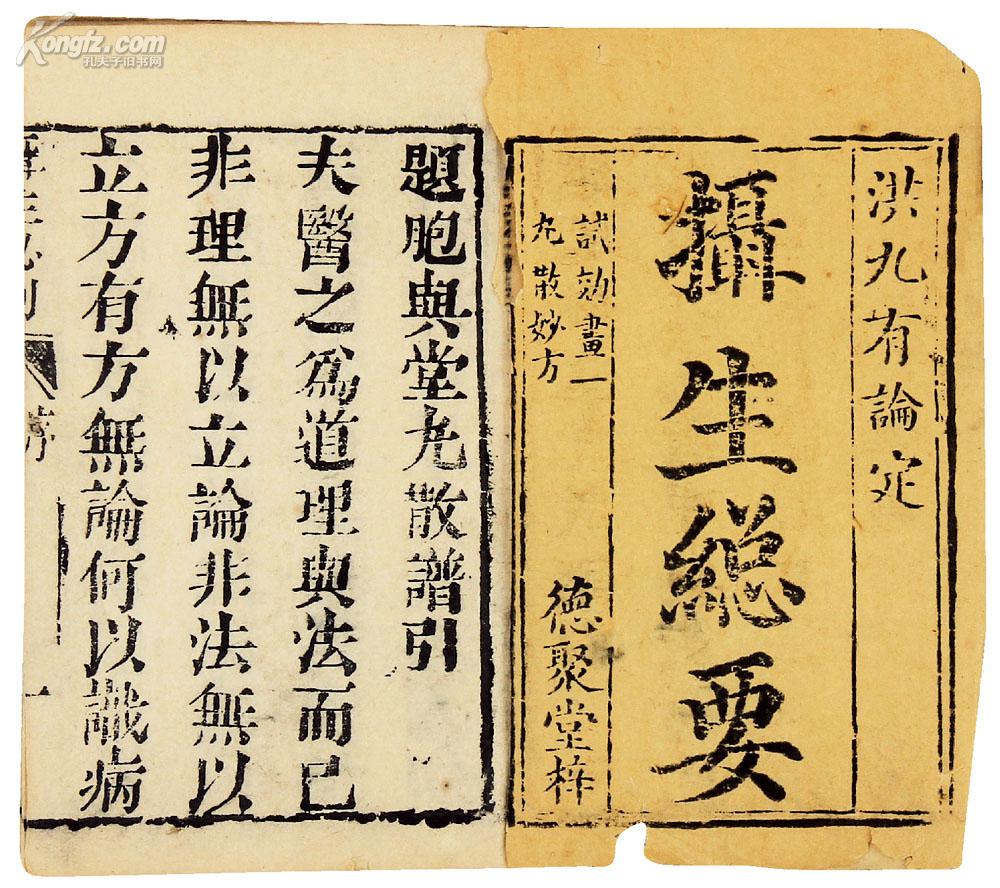 Kongfz.com
孔夫子旧书网
洪九有論定
攝生緫要
試効畫一
丸散妙方
德聚堂梓
題胞與堂丸散譜引
夫醫之爲道理與法而已
非理無以立論非法無以
立方有方無論何以識病
序
一